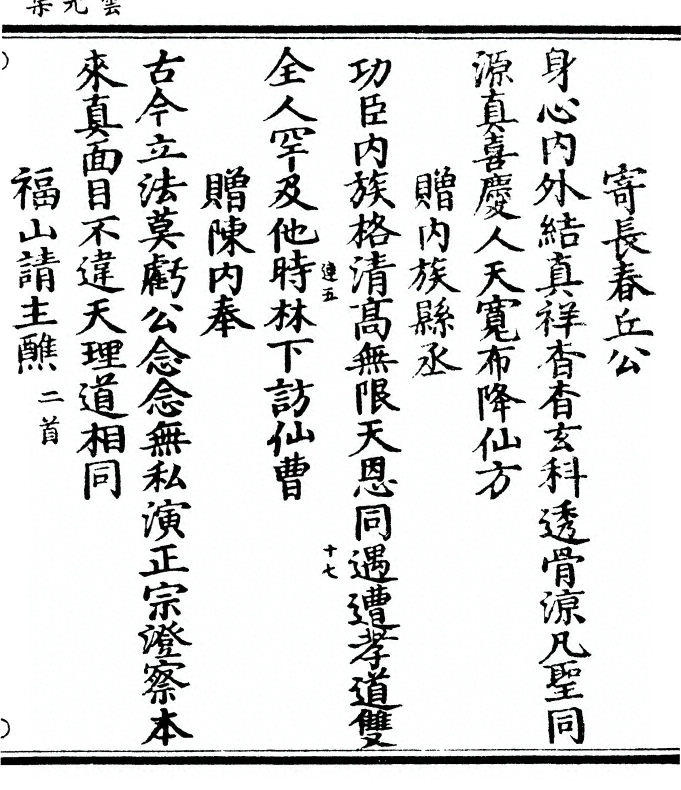 寄長春丘公
身心內外結真祥杳杳玄科透骨涼凡聖同
源真喜慶人天寬布降仙方
贈內族縣丞
功臣內族格清高無限天恩同遇遭孝道雙
連五
十七
全人罕及他時林下訪仙曹
贈陳內奉
古今立法莫虧公念念無私演正宗澄察本
來真面目不違天理道相同
福山請主醮二首
雲光集